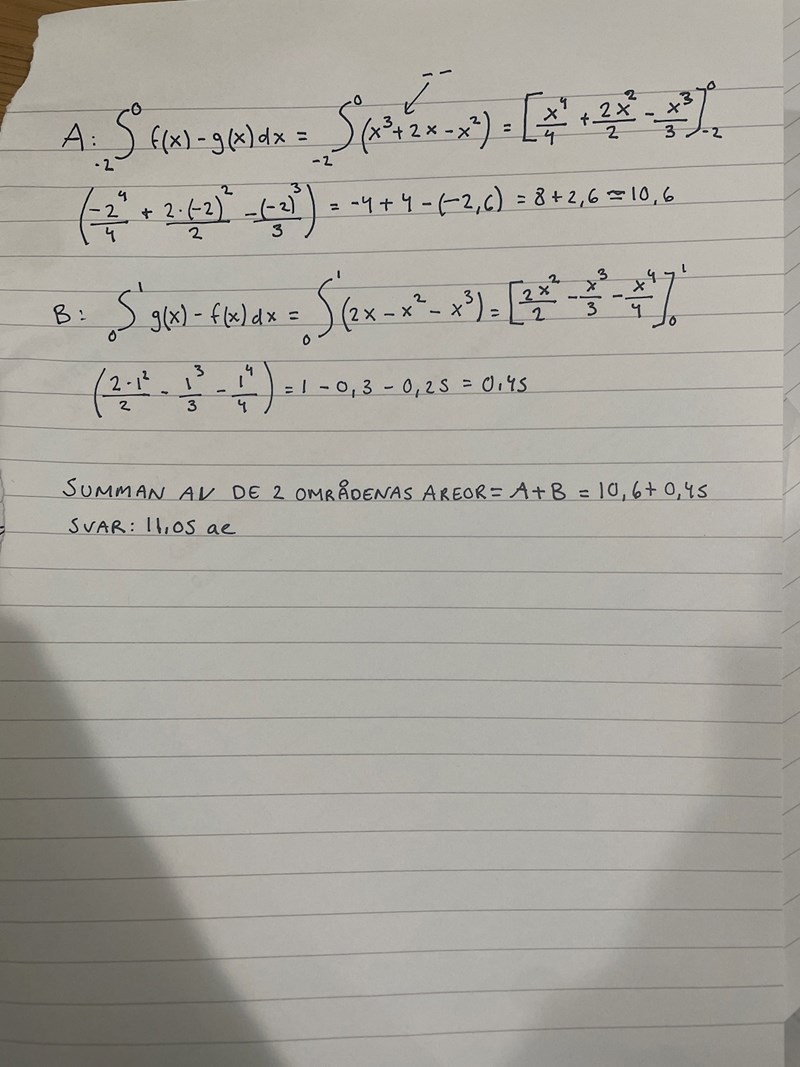 --
A: ∫₋₂⁰ f(x) - g(x) dx = ∫₋₂⁰ (x³ + 2x - x²) = [x⁴/4 + 2x²/2 - x³/3]₋₂⁰
(-2⁴/4 + 2·(-2)²/2 - (-2)³/3) = -4 + 4 - (-2,6) = 8 + 2,6 = 10,6
B: ∫₀¹ g(x) - f(x) dx = ∫₀¹ (2x - x² - x³) = [2x²/2 - x³/3 - x⁴/4]₀¹
(2·1²/2 - 1³/3 - 1⁴/4) = 1 - 0,3 - 0,25 = 0,45
SUMMAN AV DE 2 OMRÅDENAS AREOR = A+B = 10,6 + 0,45
SVAR: 11,05 ae